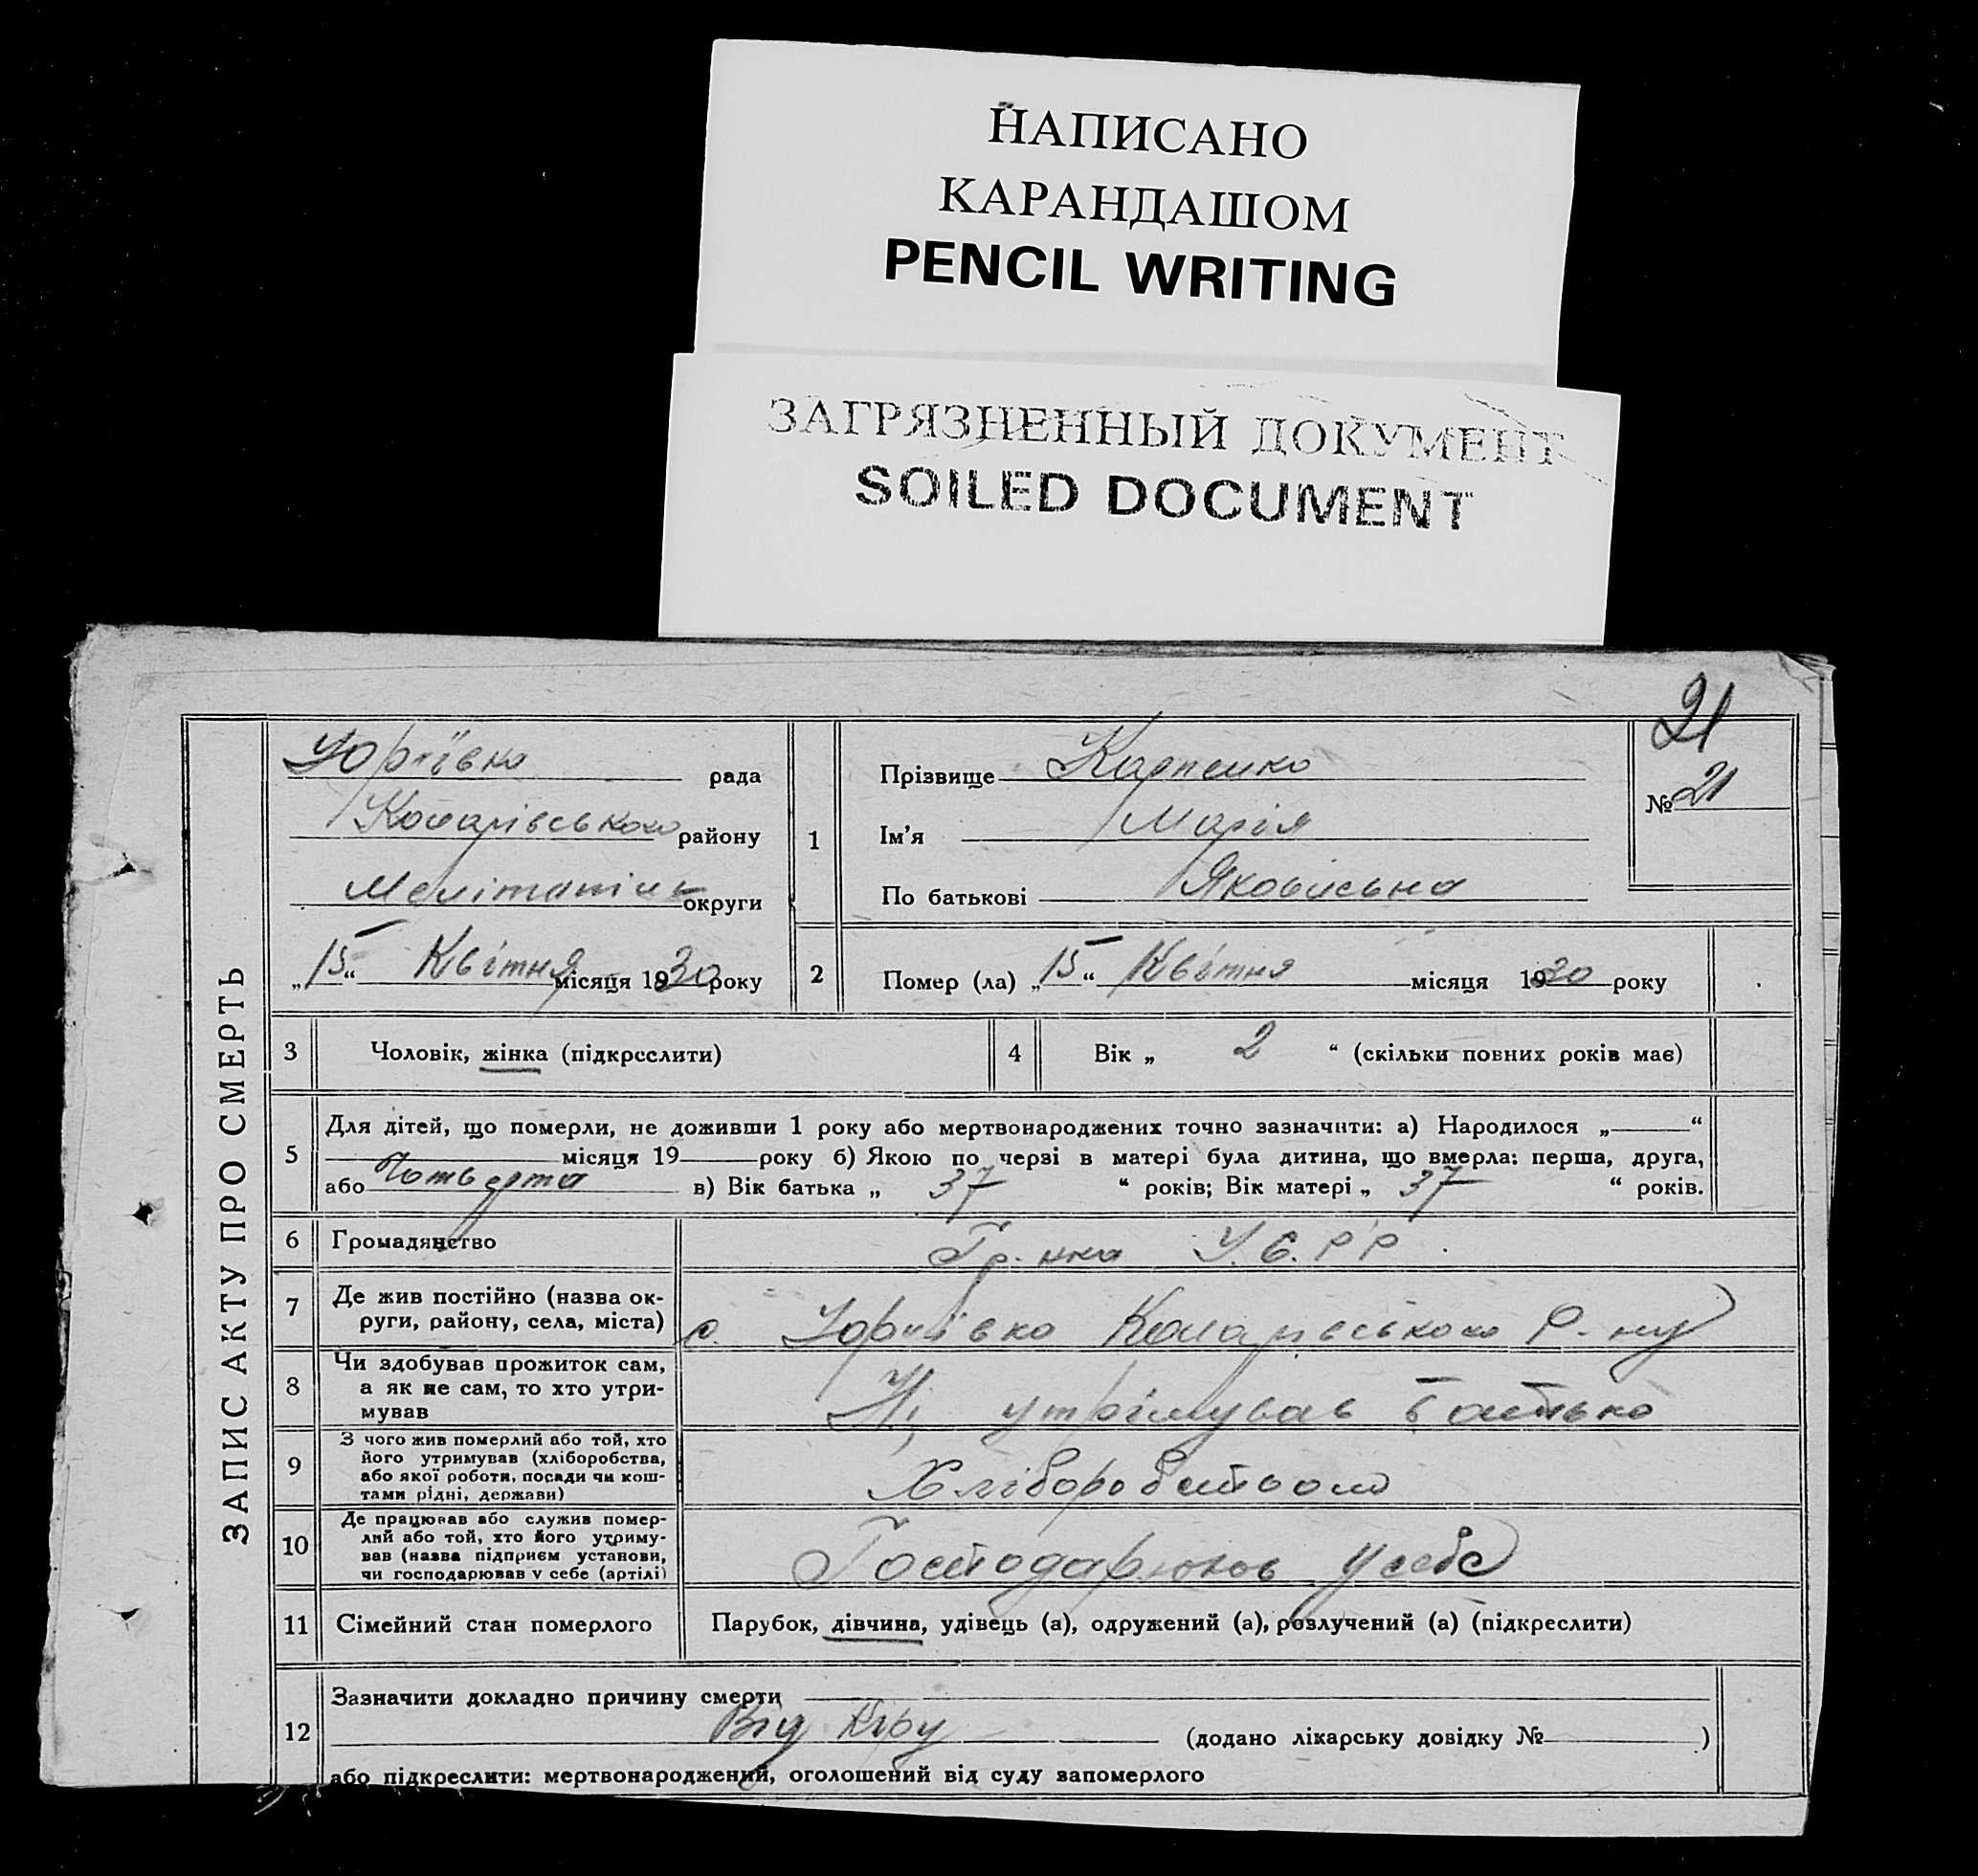 НАПИСАНО
КАРАНДАШОМ
PENCIL WRITING
ЗАГРЯЗНЕННЫЙ ДОКУМЕНТ
SOILED DOCUMENT
21
ЗАПИС АКТУ ПРО СМЕРТЬ
Юріївка рада
району
Мелітопіль округи
„15“ Квітня місяця 1930 року
1
Прізвище Карпенко
Ім’я Марія
По батькові Яковисьна
№ 21
2 Помер (ла) „15“ Квітня місяця 1930 року
3 Чоловік, жінка (підкреслити)
4 Вік „ 2 “ (скільки повних років має)
5 Для дітей, що померли, не доживши 1 року або мертвонароджених точно зазначити: а) Народилося „ “
місяця 19 року б) Якою по черзі в матері була дитина, що вмерла: перша, друга,
або Четверта в) Вік батька „ 37 “ років; Вік матері „ 37 “ років.
6 Громадянство Гр. нка У.С.Р.Р.
7 Де жив постійно (назва ок-
руги, району, села, міста) с. Юріївка Р-ну
8 Чи здобував прожиток сам,
а як не сам, то хто утри-
мував Ні, утрімував батько
9 З чого жив померлий або той, хто
його утримував (хліборобства,
або якої роботи, посади чи кош-
тами рідні, держави) Хліборобством
10 Де працював або служив помер-
лий або той, хто його утриму-
вав (назва підприєм установи,
чи господарював у себе (артілі) Господарював у себе
11 Сімейний стан померлого Парубок, дівчина, удівець (а), одружений (а), розлучений (а) (підкреслити)
12 Зазначити докладно причину смерти
Від Кіру (додано лікарську довідку № )
або підкреслити: мертвонароджений, оголошений від суду запомерлого